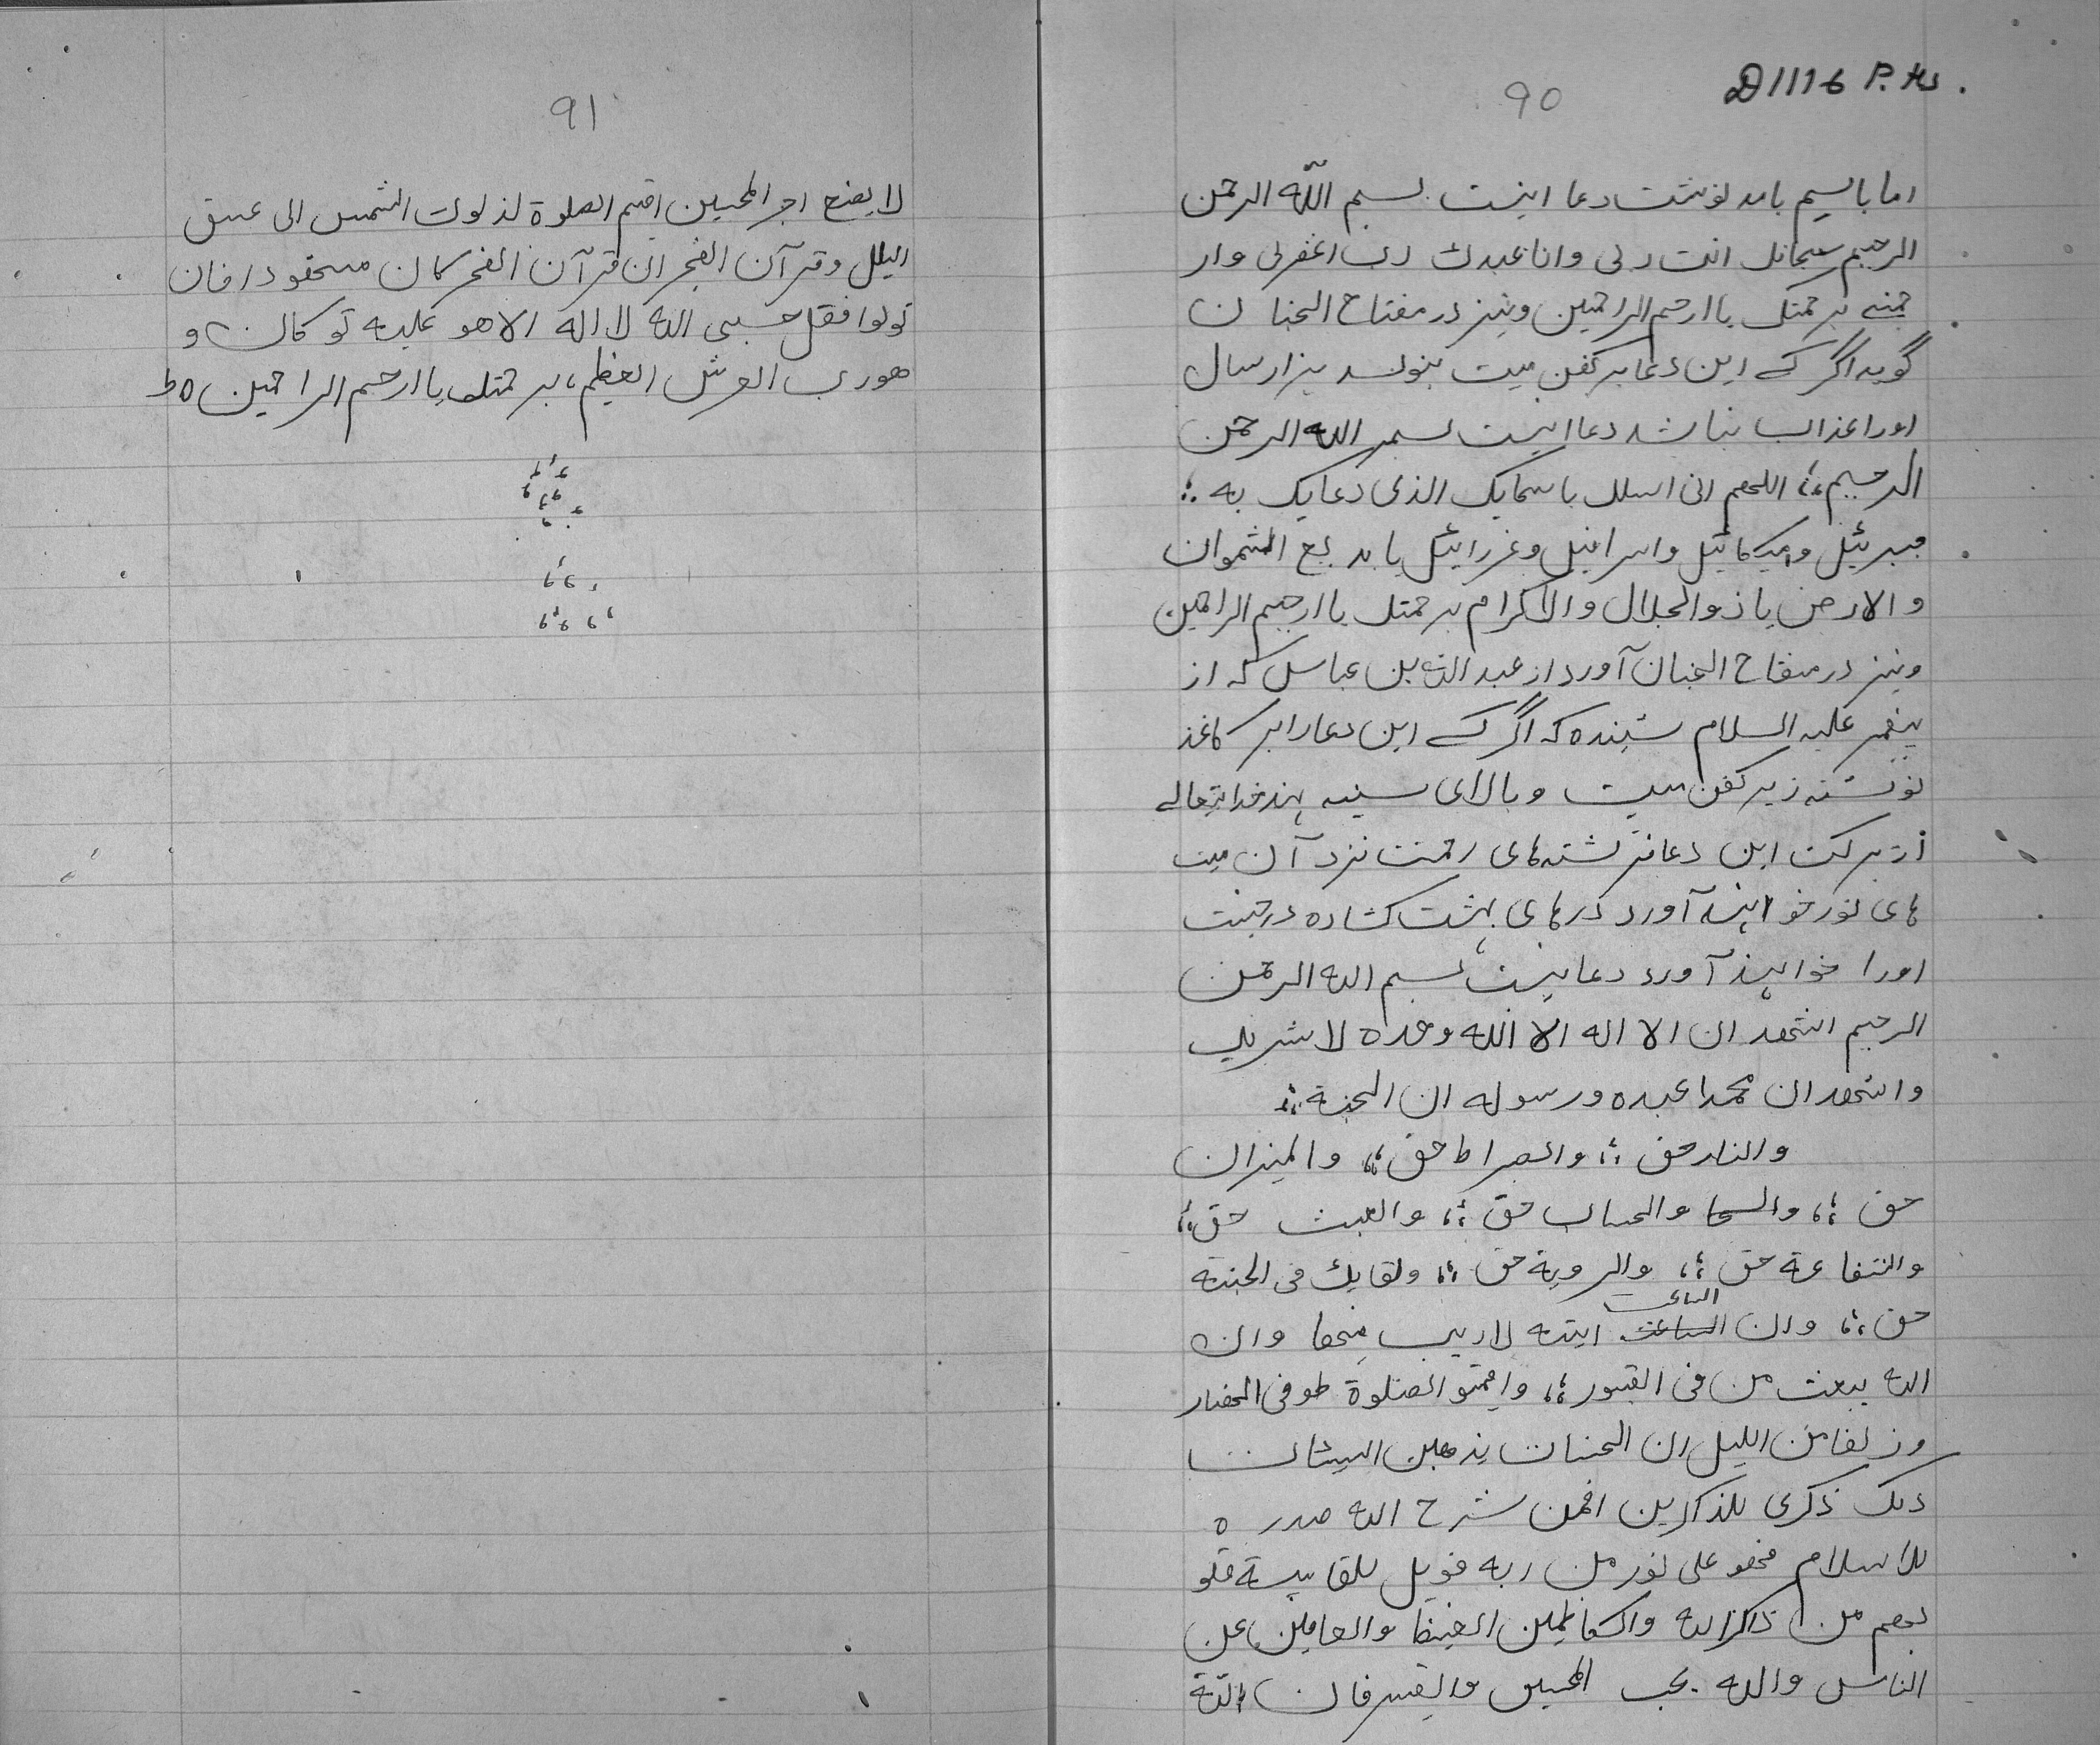 D1116 P.Hs.
90
اما باسیم باید نوشت دعا اینست بسم اللّه الرحمن
الرحیم سبحانک انت ربی وانا عبدک رب اغفرلی وار
حمنے برحمتک یا ارحم الراحمین ونیز در مفتاح الجنان
گوید اگر کے این دعا بر کفن میت بنویسد ہزار سال
اورا عذاب نباشد دعا اینست بسم اللہ الرحمن
الرحیم؛ اللھم انی اسلک باسمایک الذی دعایک به ؛
جبرئیل و میکائیل واسرافیل وعزرائیل یا بدیع السموان
والارض یا ذوالجلال والاکرام برحمتک یا ارحیم الراحمین
ونیز در مفتاح الجنان آورد از عبد اللہ بن عباس کہ از
پیغمبر علیہ السلام شنیده کہ اگر کسے این دعا را بر کاغذ
نوشتہ زیر کفن میت وبالای سینہ نہد خدایتعالے
از برکت این دعا فرشتہ های رحمت نزد آن میت
های نور خواہند آورد درهای بہشت کشاده درجنت
اورا خواہند آورد دعا نیست بسم اللہ الرحمن
الرحیم اشھد ان لا اله الا الله وحده لا شریک
واشھد ان محمدا عبده ورسوله ان الجنة ؛
والنار حق ؛ والصراط حق ؛ والمیزان
حق ؛ والسحا والحساب حق ؛ والبعث حق ؛
والشفاعة حق ؛ والرویة حق ؛ ولقایك فی الجنة
الساعت
حق ؛ وان الساعت ایتہ لاریب فیھا وان
اللہ یبعث من فی القبور ؛ واقمتو الصلوة طوفی النھار
وزلفا من اللیل ان الحسنات یذهبن السیئات
ذلک ذکری للذاکرین افمن شرح اللہ صدره
للاسلام فھو علی نور من ربه فویل للقاسیة قلو
بھم من ذکر اللہ والکاظمین الغیظ والعافین عن
الناس واللہ یحب المحسین والقسرفان اللہ
91
لا یضع اجر المحسین اقیم الصلوة لذلوک الشمس الی عسق
الیلل وقرآن الفجر ان قرآن الفجر کان مسھودا فان
تولوا فقل حسبی اللہ لا اله الا هو علیه توکالت و
هورب العرش العظیم، برحمتک یا ارحم الراحمین ٥ط